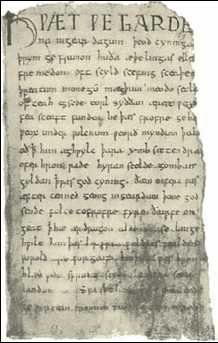 HÞÆT ǷE GARDE
na ingear dagum þeod cyninga
þrym ge frunon huða æþelingas elle
fremedon. oft scyld scefing sceaþe
þreatum monegū mægþum meodo setla
of teah egsode eorl syððan ærest ƿear
fea sceaft funden he þæs frofre geba
ƿeox under ƿolcnum ƿeorð myndum þah
oð þ him æghƿylc þara ymb sittendra
ofer hron rade hyran scolde gomban
gyldan þ ƿæs god cyning. ðæm eafera ƿæs
æfter cenned geong ingeardum þone god
sende folce tofrofre fyren ðearfe on
geat þ hie ær drugon aldor ase. lange
hƿile him þæs
ƿorold are for geaf.
blæd ƿide sprang
landum